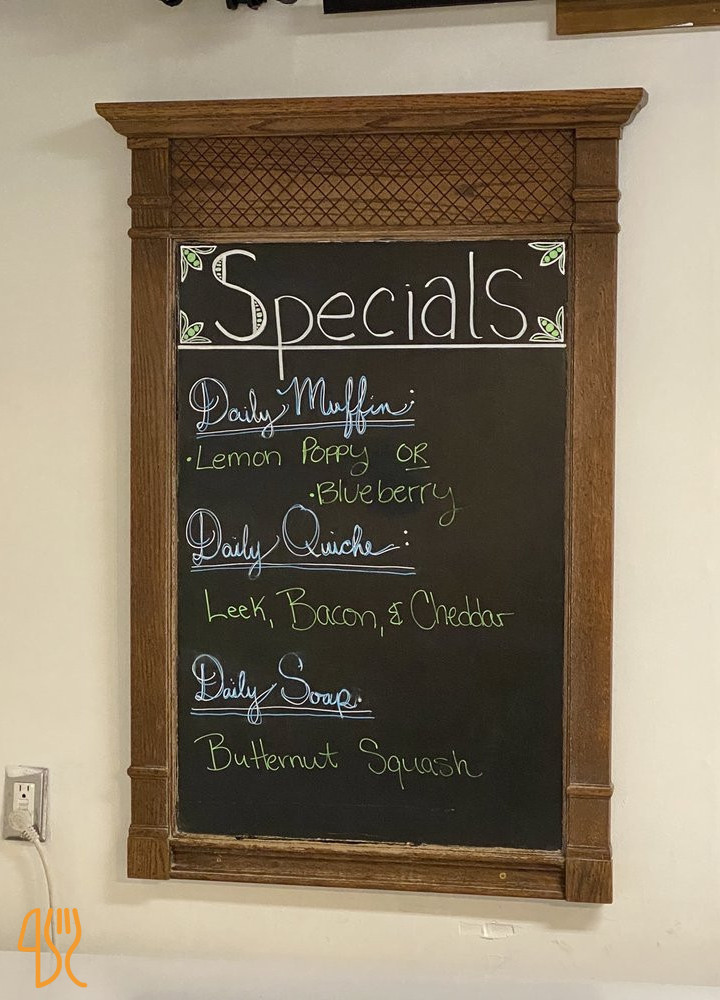 Specials
Daily Muffin:
·Lemon Poppy OR
·Blueberry
Daily Quiche:
Leek, Bacon, & Cheddar
Daily Soap.
Butternut Squash